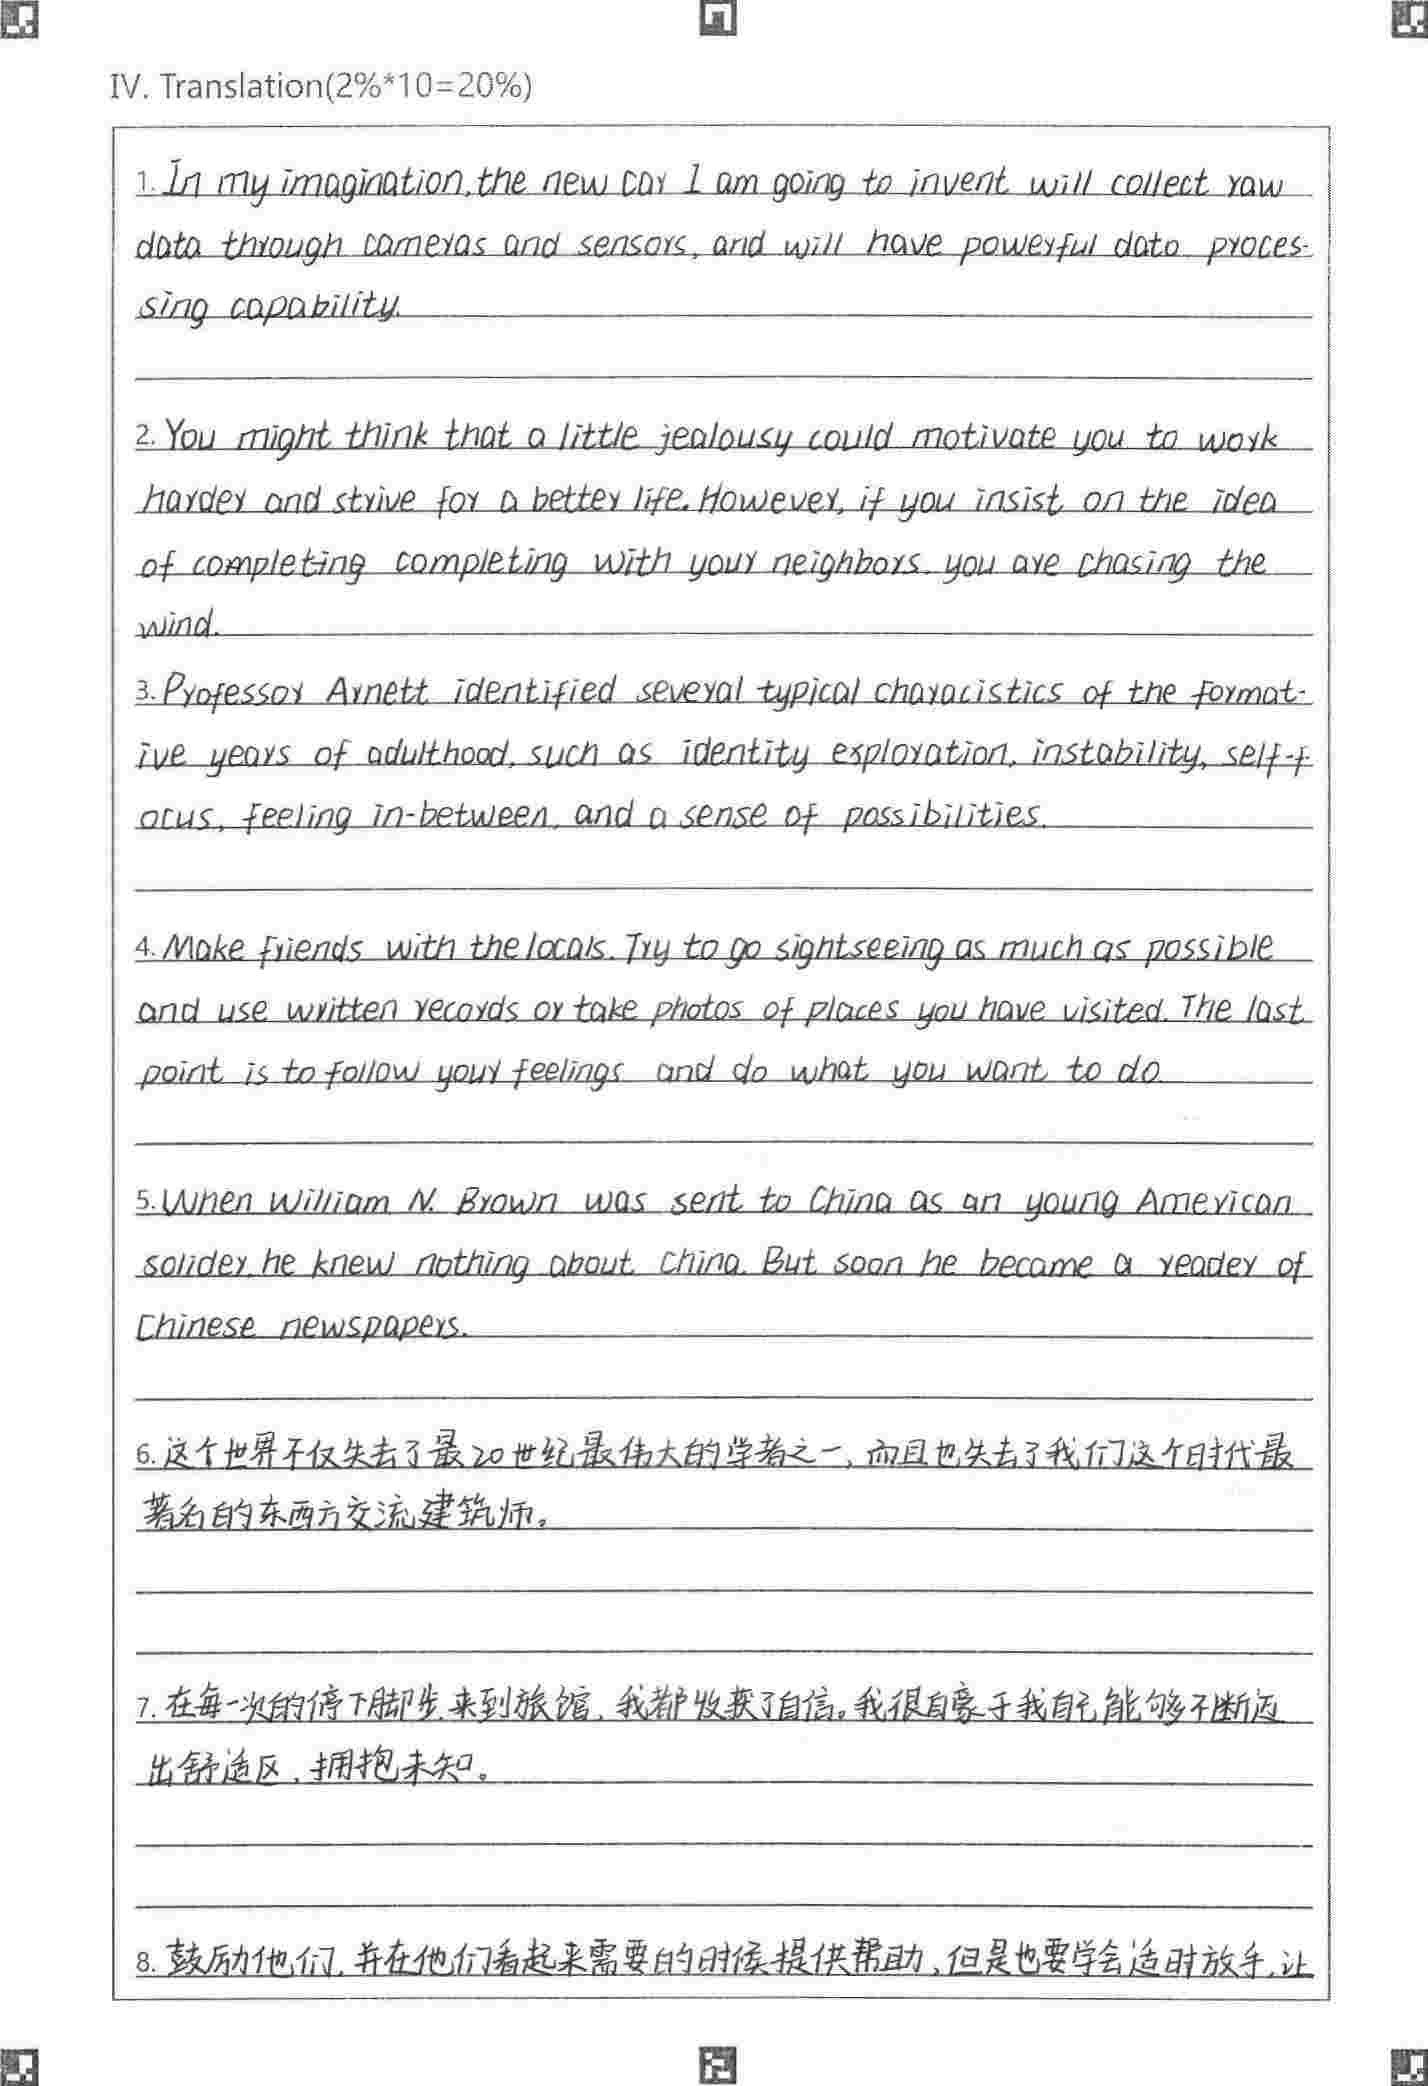 IV. Translation(2%*10=20%)
1. In my imagination, the new car I am going to invent will collect raw
data through cameras and sensors, and will have powerful data proces-
sing capability.
2. You might think that a little jealousy could motivate you to work
harder and strive for a better life. However, if you insist on the idea
of completing completing with your neighbors, you are chasing the
wind.
3. Professor Arnett identified several typical characistics of the format-
ive years of adulthood, such as identity exploration, instability, self-f
ocus, feeling in-between, and a sense of possibilities.
4. Make friends with the locals. Try to go sightseeing as much as possible
and use written records or take photos of places you have visited. The last
point is to follow your feelings and do what you want to do.
5. When William N. Brown was sent to China as an young American
solider, he knew nothing about China. But soon he became a reader of
Chinese newspapers.
6. 这个世界不仅失去了最20世纪最伟大的学者之一，而且也失去了我们这个时代最
著名的东西方交流建筑师。
7. 在每一次的停下脚步，来到旅馆，我都收获了自信。我很自豪于我自己能够不断迈
出舒适区，拥抱未知。
8. 鼓励他们，并在他们看起来需要的时候提供帮助，但是也要学会适时放手，让